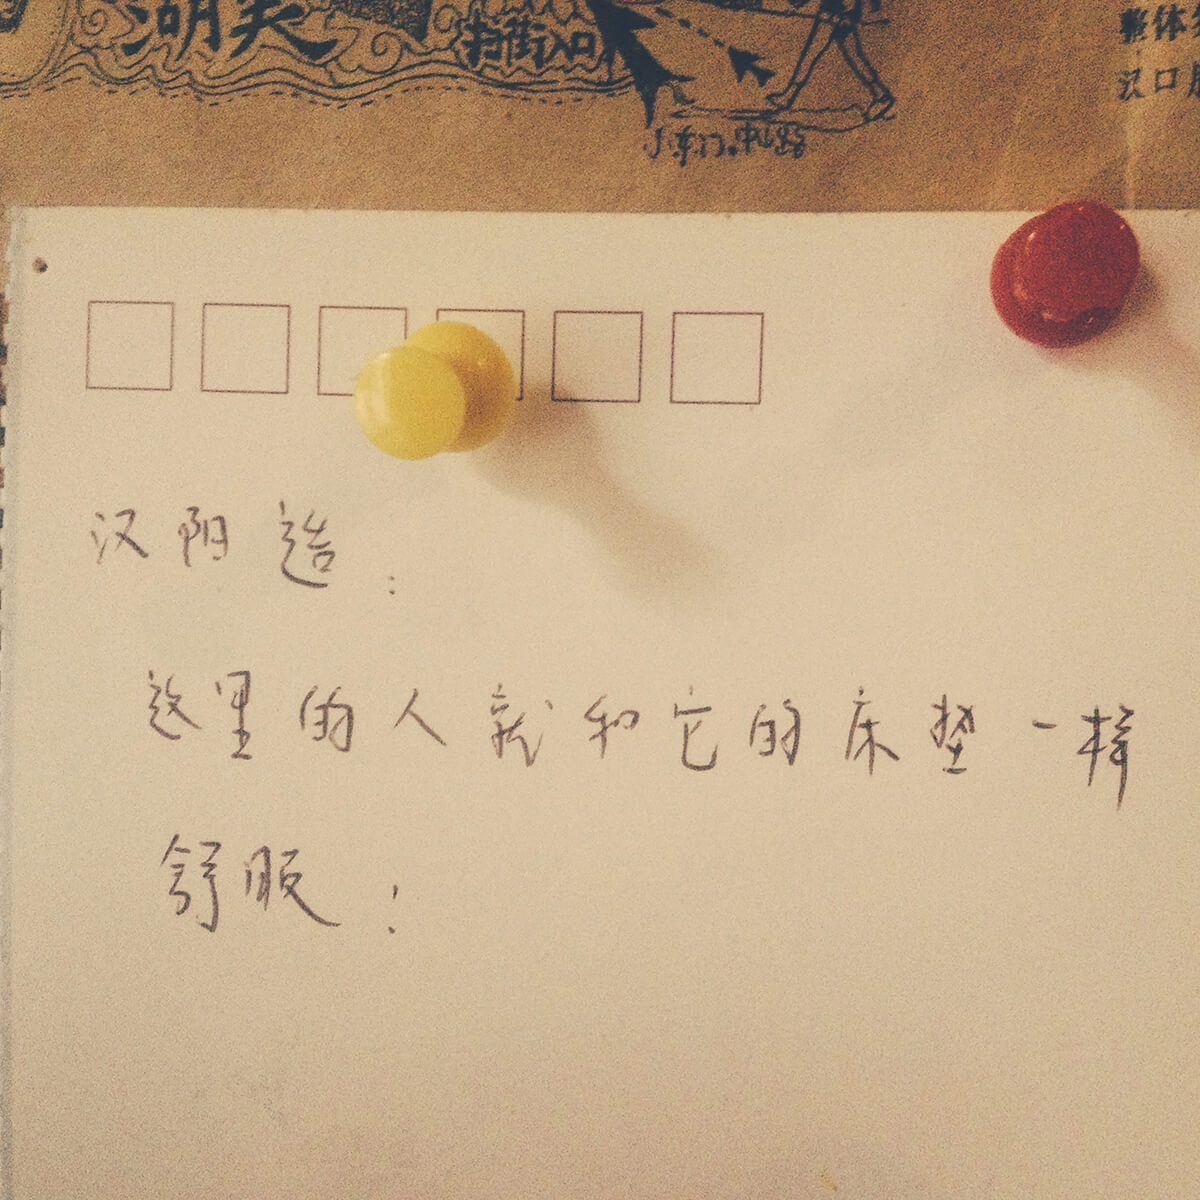 湖美
扫街入口
小东门.中山路
整体
汉口
汉阳造:
这里的人就和它的床垫一样
舒服!